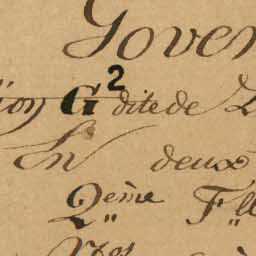 Gover
ion G² dite de
En deux
2ème F"lle